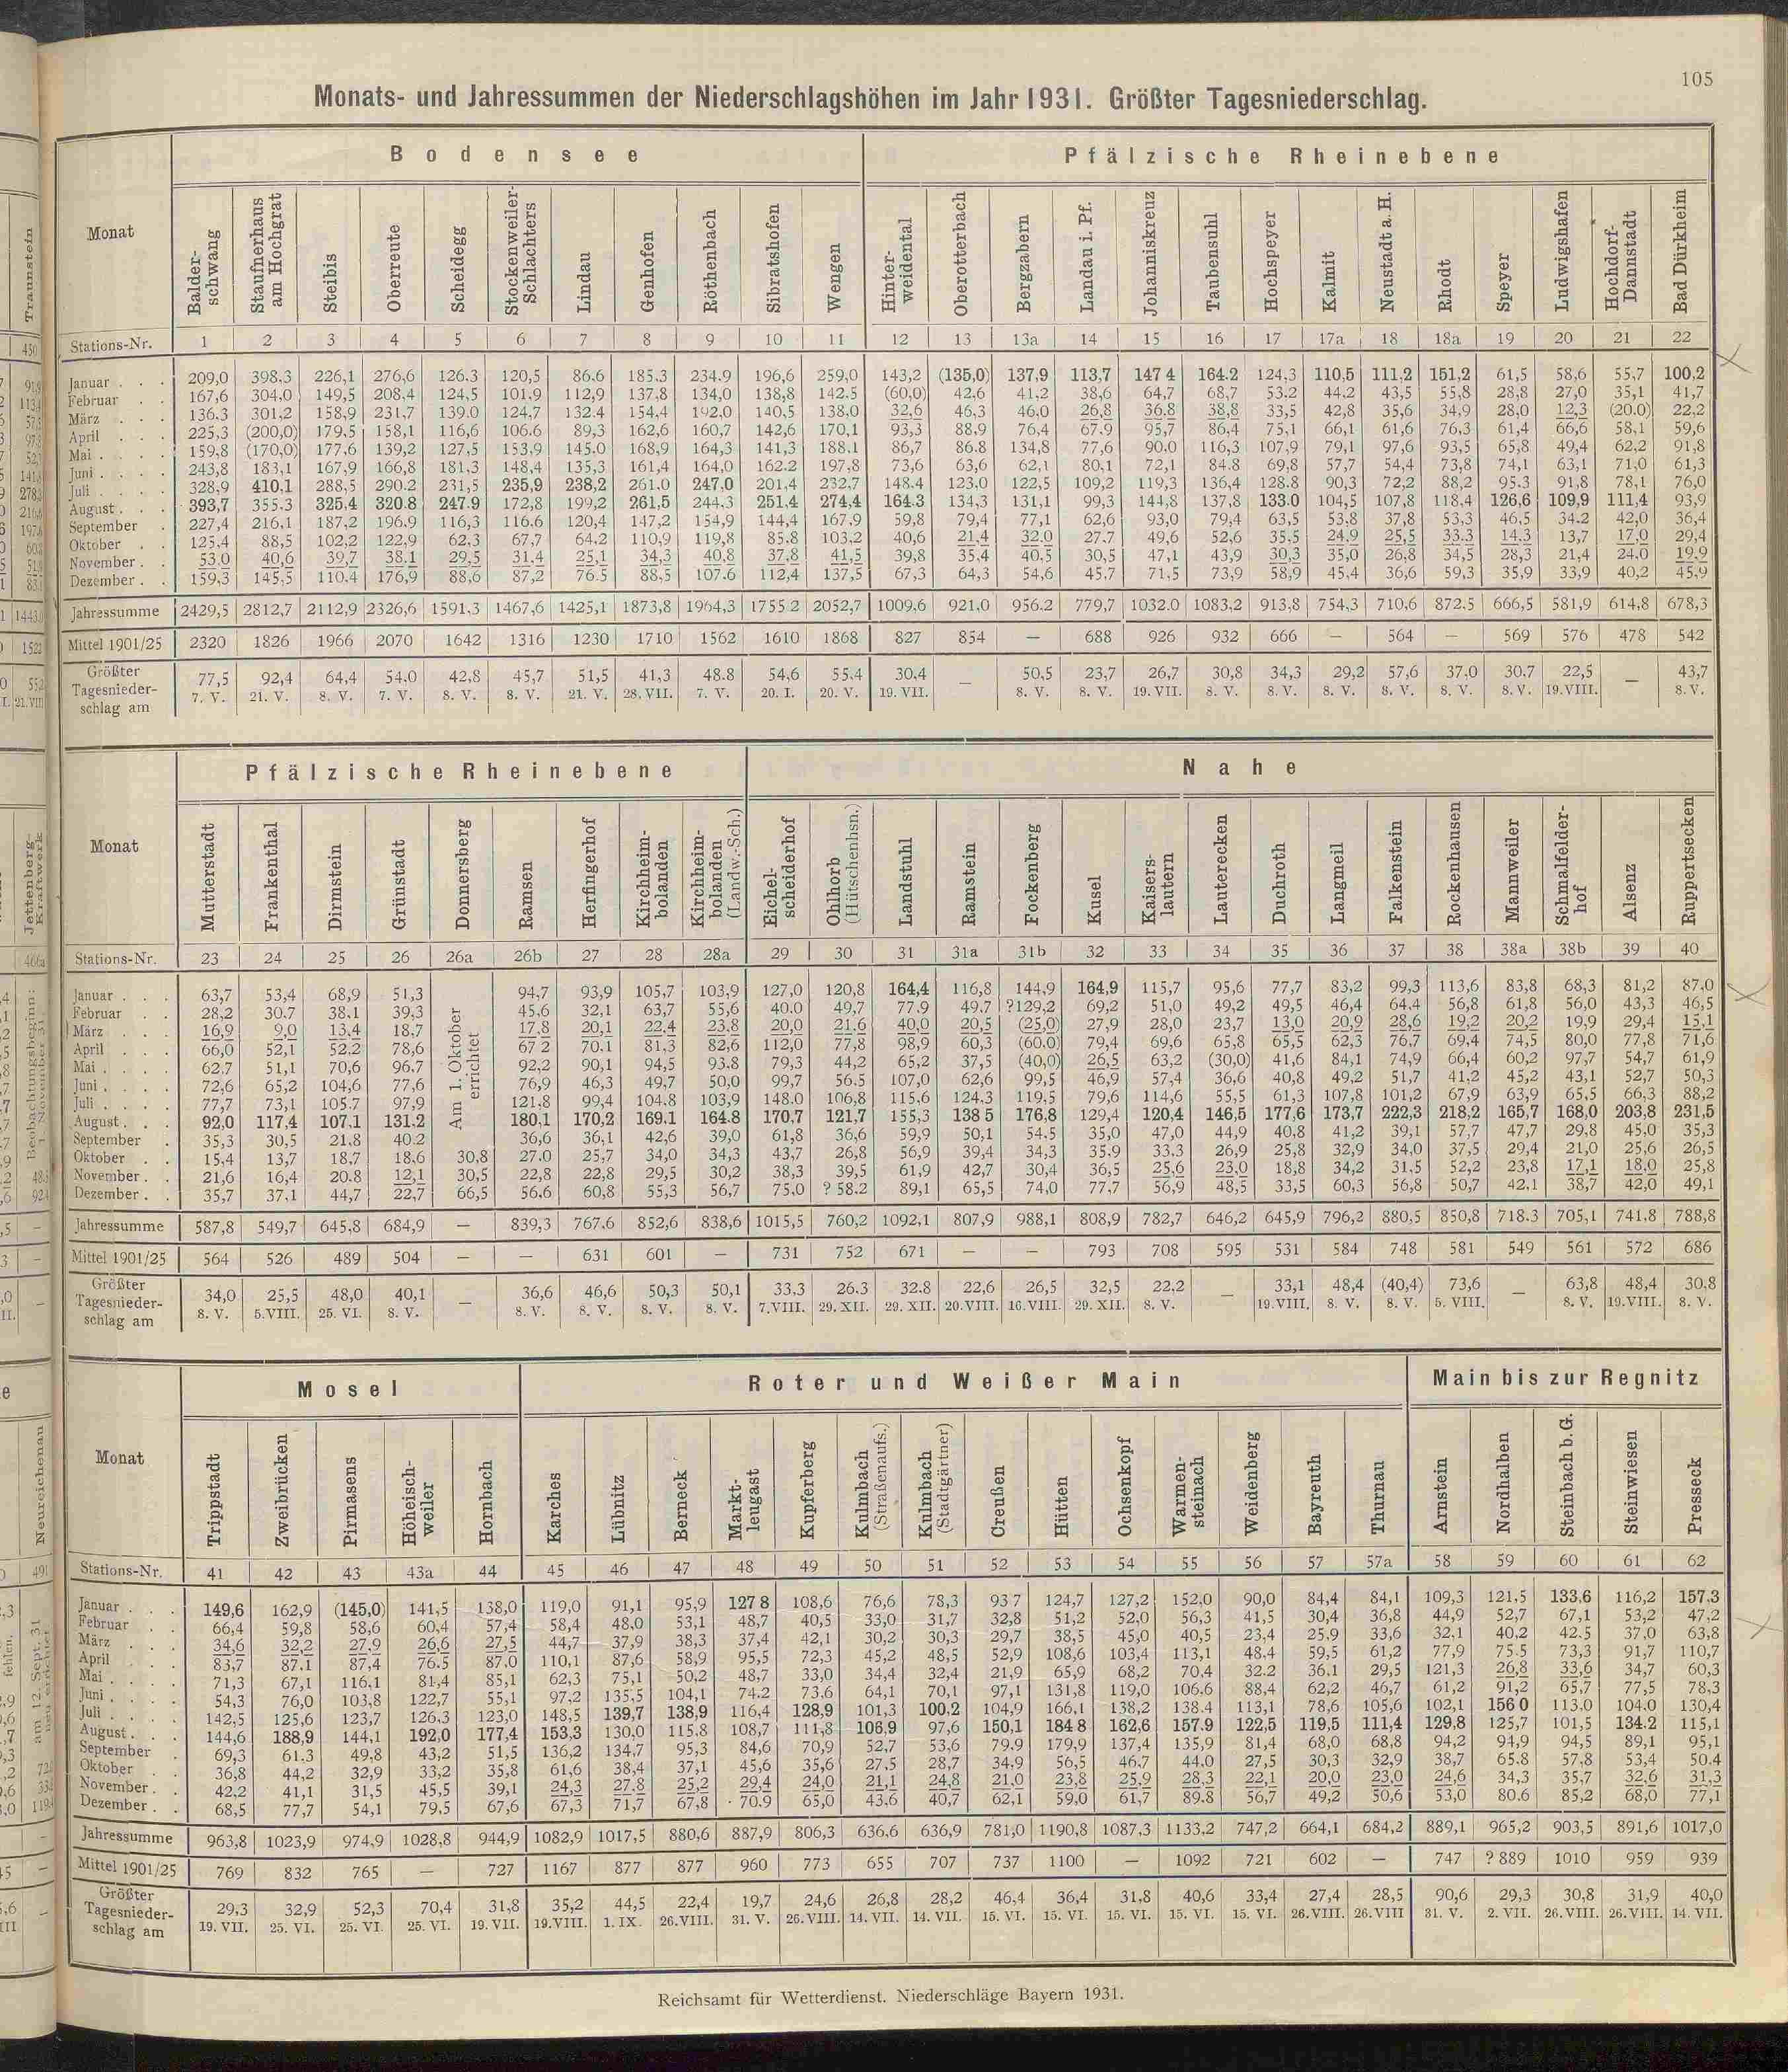 105
Monats- und Jahressummen der Niederschlagshöhen im Jahr 1931. Größter Tagesniederschlag.
Monat Bodensee Pfälzische Rheinebene
Balder-schwang Staufnerhaus am Hochgrat Steibis Oberreute Scheidegg Stockenweiler-Schlachters Lindau Genhofen Röthenbach Sibratshofen Wengen Hinter-weidental Oberotterbach Bergzabern Landau i. Pf. Johanniskreuz Taubensuhl Hochspeyer Kalmit Neustadt a. H. Rhodt Speyer Ludwigshafen Hochdorf-Dannstadt Bad Dürkheim
Stations-Nr. 1 2 3 4 5 6 7 8 9 10 11 12 13 13a 14 15 16 17 17a 18 18a 19 20 21 22
Januar . . . 209,0 398,3 226,1 276,6 126,3 120,5 86,6 185,3 234,9 196,6 259,0 143,2 (135,0) 137,9 113,7 147 4 164,2 124,3 110,5 111,2 151,2 61,5 58,6 55,7 100,2
Februar . . 167,6 304,0 149,5 208,4 124,5 101,9 112,9 137,8 134,0 138,8 142,5 (60,0) 42,6 41,2 38,6 64,7 68,7 53,2 44,2 43,5 55,8 28,8 27,0 35,1 41,7
März . . . 136,3 301,2 158,9 231,7 139,0 124,7 132,4 154,4 192,0 140,5 138,0 32,6 46,3 46,0 26,8 36,8 38,8 33,5 42,8 35,6 34,9 28,0 12,3 (20,0) 22,2
April . . . 225,3 (200,0) 179,5 158,1 116,6 106,6 89,3 162,6 160,7 142,6 170,1 93,3 88,9 76,4 67,9 95,7 86,4 75,1 66,1 61,6 76,3 61,4 66,6 58,1 59,6
Mai . . . . 159,8 (170,0) 177,6 139,2 127,5 153,9 145,0 168,9 164,3 141,3 188,1 86,7 86,8 134,8 77,6 90,0 116,3 107,9 79,1 97,6 93,5 65,8 49,4 62,2 91,8
Juni . . . . 243,8 183,1 167,9 166,8 181,3 148,4 135,3 161,4 164,0 162,2 197,8 73,6 63,6 62,1 80,1 72,1 84,8 69,8 57,7 54,4 73,8 74,1 63,1 71,0 61,3
Juli . . . . 328,9 410,1 288,5 290,2 231,5 235,9 238,2 261,0 247,0 201,4 232,7 148,4 123,0 122,5 109,2 119,3 136,4 128,8 90,3 72,2 88,2 95,3 91,8 78,1 76,0
August . . . 393,7 355,3 325,4 320,8 247,9 172,8 199,2 261,5 244,3 251,4 274,4 164,3 134,3 131,1 99,3 144,8 137,8 133,0 104,5 107,8 118,4 126,6 109,9 111,4 93,9
September . 227,4 216,1 187,2 196,9 116,3 116,6 120,4 147,2 154,9 144,4 167,9 59,8 79,4 77,1 62,6 93,0 79,4 63,5 53,8 37,8 53,3 46,5 34,2 42,0 36,4
Oktober . . 125,4 88,5 102,2 122,9 62,3 67,7 64,2 110,9 119,8 85,8 103,2 40,6 21,4 32,0 27,7 49,6 52,6 35,5 24,9 25,5 33,3 14,3 13,7 17,0 29,4
November . . 53,0 40,6 39,7 38,1 29,5 31,4 25,1 34,3 40,8 37,8 41,5 39,8 35,4 40,5 30,5 47,1 43,9 30,3 35,0 26,8 34,5 28,3 21,4 24,0 19,9
Dezember . . 159,3 145,5 110,4 176,9 88,6 87,2 76,5 88,5 107,6 112,4 137,5 67,3 64,3 54,6 45,7 71,5 73,9 58,9 45,4 36,6 59,3 35,9 33,9 40,2 45,9
Jahressumme 2429,5 2812,7 2112,9 2326,6 1591,3 1467,6 1425,1 1873,8 1964,3 1755 2 2052,7 1009,6 921,0 956,2 779,7 1032,0 1083,2 913,8 754,3 710,6 872,5 666,5 581,9 614,8 678,3
Mittel 1901/25 2320 1826 1966 2070 1642 1316 1230 1710 1562 1610 1868 827 854 — 688 926 932 666 — 564 — 569 576 478 542
Größter Tagesnieder- 77,5 92,4 64,4 54,0 42,8 45,7 51,5 41,3 48,8 54,6 55,4 30,4 — 50,5 23,7 26,7 30,8 34,3 29,2 57,6 37,0 30,7 22,5 — 43,7
schlag am 7. V. 21. V. 8. V. 7. V. 8. V. 8. V. 21. V. 28. VII. 7. V. 20. I. 20. V. 19. VII. 8. V. 8. V. 19. VII. 8. V. 8. V. 8. V. 8. V. 8. V. 8. V. 19. VIII. 8. V.
Monat Pfälzische Rheinebene Nahe
Mutterstadt Frankenthal Dirmstein Grünstadt Donnersberg Ramsen Herfingerhof Kirchheim-bolanden Kirchheim-bolanden (Landw.-Sch.) Eichel-scheiderhof Ohlhorb (Hütschenhsn.) Landstuhl Ramstein Fockenberg Kusel Kaisers-lautern Lauterecken Duchroth Langmeil Falkenstein Rockenhausen Mannweiler Schmalfelder-hof Alsenz Ruppertsecken
Stations-Nr. 23 24 25 26 26a 26b 27 28 28a 29 30 31 31a 31b 32 33 34 35 36 37 38 38a 38b 39 40
Am 1. Oktober errichtet
Januar . . . 63,7 53,4 68,9 51,3 94,7 93,9 105,7 103,9 127,0 120,8 164,4 116,8 144,9 164,9 115,7 95,6 77,7 83,2 99,3 113,6 83,8 68,3 81,2 87,0
Februar . . 28,2 30,7 38,1 39,3 45,6 32,1 63,7 55,6 40,0 49,7 77,9 49,7 ?129,2 69,2 51,0 49,2 49,5 46,4 64,4 56,8 61,8 56,0 43,3 46,5
März . . . 16,9 9,0 13,4 18,7 17,8 20,1 22,4 23,8 20,0 21,6 40,0 20,5 (25,0) 27,9 28,0 23,7 13,0 20,9 28,6 19,2 20,2 19,9 29,4 15,1
April . . . 66,0 52,1 52,2 78,6 67 2 70,1 81,3 82,6 112,0 77,8 98,9 60,3 (60,0) 79,4 69,6 65,8 65,5 62,3 76,7 69,4 74,5 80,0 77,8 71,6
Mai . . . . 62,7 51,1 70,6 96,7 92,2 90,1 94,5 93,8 79,3 44,2 65,2 37,5 (40,0) 26,5 63,2 (30,0) 41,6 84,1 74,9 66,4 60,2 97,7 54,7 61,9
Juni . . . . 72,6 65,2 104,6 77,6 76,9 46,3 49,7 50,0 99,7 56,5 107,0 62,6 99,5 46,9 57,4 36,6 40,8 49,2 51,7 41,2 45,2 43,1 52,7 50,3
Juli . . . . 77,7 73,1 105,7 97,9 121,8 99,4 104,8 103,9 148,0 106,8 115,6 124,3 119,5 79,6 114,6 55,5 61,3 107,8 101,2 67,9 63,9 65,5 66,3 88,2
August . . . 92,0 117,4 107,1 131,2 180,1 170,2 169,1 164,8 170,7 121,7 155,3 138 5 176,8 129,4 120,4 146,5 177,6 173,7 222,3 218,2 165,7 168,0 203,8 231,5
September . 35,3 30,5 21,8 40,2 36,6 36,1 42,6 39,0 61,8 36,6 59,9 50,1 54,5 35,0 47,0 44,9 40,8 41,2 39,1 57,7 47,7 29,8 45,0 35,3
Oktober . . 15,4 13,7 18,7 18,6 30,8 27,0 25,7 34,0 34,3 43,7 26,8 56,9 39,4 34,3 35,9 33,3 26,9 25,8 32,9 34,0 37,5 29,4 21,0 25,6 26,5
November . . 21,6 16,4 20,8 12,1 30,5 22,8 22,8 29,5 30,2 38,3 39,5 61,9 42,7 30,4 36,5 25,6 23,0 18,8 34,2 31,5 52,2 23,8 17,1 18,0 25,8
Dezember . . 35,7 37,1 44,7 22,7 66,5 56,6 60,8 55,3 56,7 75,0 ? 58,2 89,1 65,5 74,0 77,7 56,9 48,5 33,5 60,3 56,8 50,7 42,1 38,7 42,0 49,1
Jahressumme 587,8 549,7 645,8 684,9 — 839,3 767,6 852,6 838,6 1015,5 760,2 1092,1 807,9 988,1 808,9 782,7 646,2 645,9 796,2 880,5 850,8 718,3 705,1 741,8 788,8
Mittel 1901/25 564 526 489 504 — — 631 601 — 731 752 671 — — 793 708 595 531 584 748 581 549 561 572 686
Größter Tagesnieder- 34,0 25,5 48,0 40,1 — 36,6 46,6 50,3 50,1 33,3 26,3 32,8 22,6 26,5 32,5 22,2 — 33,1 48,4 (40,4) 73,6 — 63,8 48,4 30,8
schlag am 8. V. 5. VIII. 25. VI. 8. V. 8. V. 8. V. 8. V. 8. V. 7. VIII. 29. XII. 29. XII. 20. VIII. 16. VIII. 29. XII. 8. V. 19. VIII. 8. V. 8. V. 5. VIII. 8. V. 19. VIII. 8. V.
Monat Mosel Roter und Weißer Main Main bis zur Regnitz
Trippstadt Zweibrücken Pirmasens Höheisch-weiler Hornbach Karches Lübnitz Berneck Markt-leugast Kupferberg Kulmbach (Straßenaufs.) Kulmbach (Stadtgärtner) Creußen Hütten Ochsenkopf Warmen-steinach Weidenberg Bayreuth Thurnau Arnstein Nordhalben Steinbach b. G. Steinwiesen Presseck
Stations-Nr. 41 42 43 43a 44 45 46 47 48 49 50 51 52 53 54 55 56 57 57a 58 59 60 61 62
Januar . . . 149,6 162,9 (145,0) 141,5 138,0 119,0 91,1 95,9 127 8 108,6 76,6 78,3 93 7 124,7 127,2 152,0 90,0 84,4 84,1 109,3 121,5 133,6 116,2 157,3
Februar . . 66,4 59,8 58,6 60,4 57,4 58,4 48,0 53,1 48,7 40,5 33,0 31,7 32,8 51,2 52,0 56,3 41,5 30,4 36,8 44,9 52,7 67,1 53,2 47,2
März . . . 34,6 32,2 27,9 26,6 27,5 44,7 37,9 38,3 37,4 42,1 30,2 30,3 29,7 38,5 45,0 40,5 23,4 25,9 33,6 32,1 40,2 42,5 37,0 63,8
April . . . 83,7 87,1 87,4 76,5 87,0 110,1 87,6 58,9 95,5 72,3 45,2 48,5 52,9 108,6 103,4 113,1 48,4 59,5 61,2 77,9 75,5 73,3 91,7 110,7
Mai . . . . 71,3 67,1 116,1 81,4 85,1 62,3 75,1 50,2 48,7 33,0 34,4 32,4 21,9 65,9 68,2 70,4 32,2 36,1 29,5 121,3 26,8 33,6 34,7 60,3
Juni . . . . 54,3 76,0 103,8 122,7 55,1 97,2 135,5 104,1 74,2 73,6 64,1 70,1 97,1 131,8 119,0 106,6 88,4 62,2 46,7 61,2 91,2 65,7 77,5 78,3
Juli . . . . 142,5 125,6 123,7 126,3 123,0 148,5 139,7 138,9 116,4 128,9 101,3 100,2 104,9 166,1 138,2 138,4 113,1 78,6 105,6 102,1 156 0 113,0 104,0 130,4
August . . . 144,6 188,9 144,1 192,0 177,4 153,3 130,0 115,8 108,7 111,8 106,9 97,6 150,1 184 8 162,6 157,9 122,5 119,5 111,4 129,8 125,7 101,5 134,2 115,1
September . 69,3 61,3 49,8 43,2 51,5 136,2 134,7 95,3 84,6 70,9 52,7 53,6 79,9 179,9 137,4 135,9 81,4 68,0 68,8 94,2 94,9 94,5 89,1 95,1
Oktober . . 36,8 44,2 32,9 33,2 35,8 61,6 38,4 37,1 45,6 35,6 27,5 28,7 34,9 56,5 46,7 44,0 27,5 30,3 32,9 38,7 65,8 57,8 53,4 50,4
November . . 42,2 41,1 31,5 45,5 39,1 24,3 27,8 25,2 29,4 24,0 21,1 24,8 21,0 23,8 25,9 28,3 22,1 20,0 23,0 24,6 34,3 35,7 32,6 31,3
Dezember . . 68,5 77,7 54,1 79,5 67,6 67,3 71,7 67,8 70,9 65,0 43,6 40,7 62,1 59,0 61,7 89,8 56,7 49,2 50,6 53,0 80,6 85,2 68,0 77,1
Jahressumme 963,8 1023,9 974,9 1028,8 944,9 1082,9 1017,5 880,6 887,9 806,3 636,6 636,9 781,0 1190,8 1087,3 1133,2 747,2 664,1 684,2 889,1 965,2 903,5 891,6 1017,0
Mittel 1901/25 769 832 765 — 727 1167 877 877 960 773 655 707 737 1100 — 1092 721 602 — 747 ? 889 1010 959 939
Größter Tagesnieder- 29,3 32,9 52,3 70,4 31,8 35,2 44,5 22,4 19,7 24,6 26,8 28,2 46,4 36,4 31,8 40,6 33,4 27,4 28,5 90,6 29,3 30,8 31,9 40,0
schlag am 19. VII. 25. VI. 25. VI. 25. VI. 19. VII. 19. VIII. 1. IX. 26. VIII. 31. V. 26. VIII. 14. VII. 14. VII. 15. VI. 15. VI. 15. VI. 15. VI. 15. VI. 26. VIII. 26. VIII 31. V. 2. VII. 26. VIII. 26. VIII. 14. VII.
Reichsamt für Wetterdienst. Niederschläge Bayern 1931.